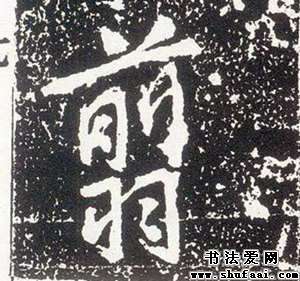 翦
书法爱网
www.shufaai.com